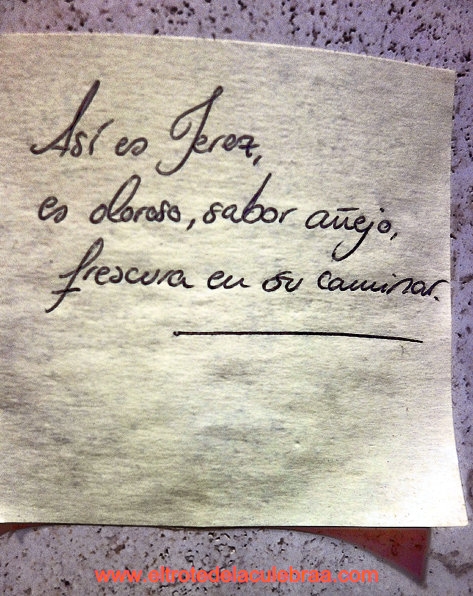 Así es Jerez,
es oloroso, sabor añejo,
frescura en su caminar.
www.elirotedelaculebraa.com